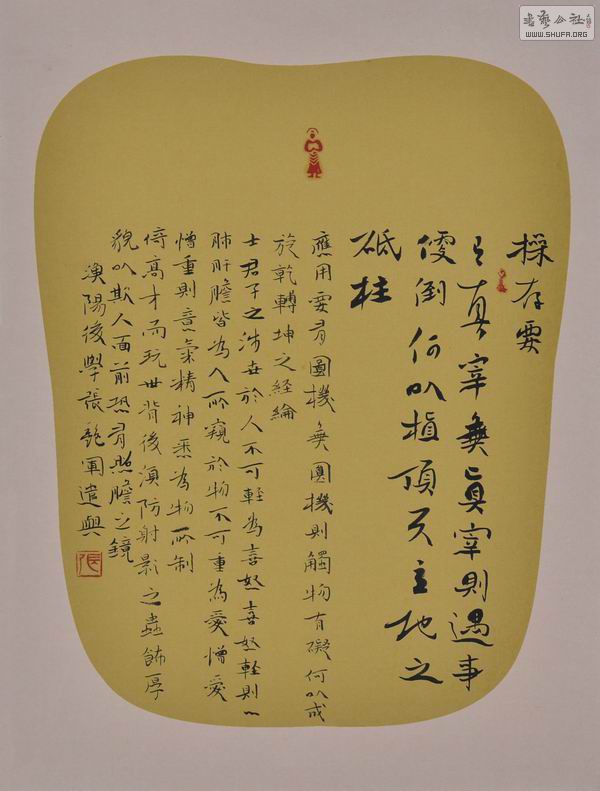 操存要
有真宰無真宰則遇事
便倒何以植頂天立地之
砥柱
應用要有圓機無圓機則觸物有礙何以成
旋乾轉坤之經綸
士君子之涉世於人不可輕為喜怒喜怒輕則心
肺肝膽皆為人所窺於物不可重為愛憎愛
憎重則意氣精神悉為物所制
倚高才而玩世背後須防射影之蟲飾厚
貌以欺人面前恐有照膽之鏡
漁陽後學張艷軍遣興
張
書藝公社
WWW.SHUFA.ORG